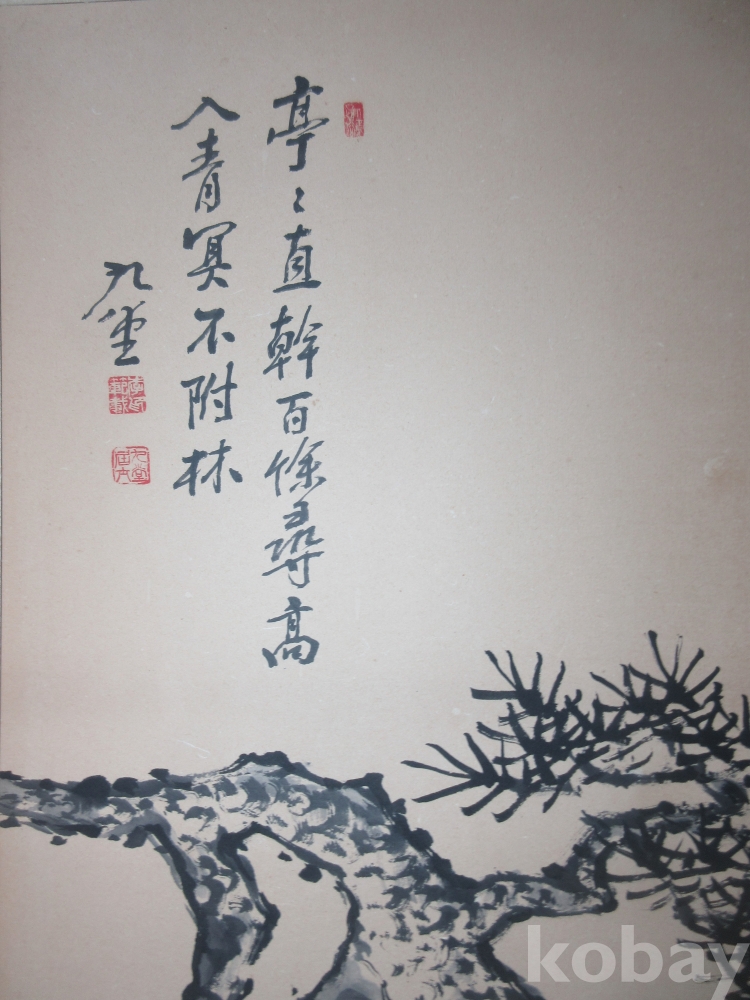 亭〻直幹百餘尋高
入靑冥不附林
九堂
kobay